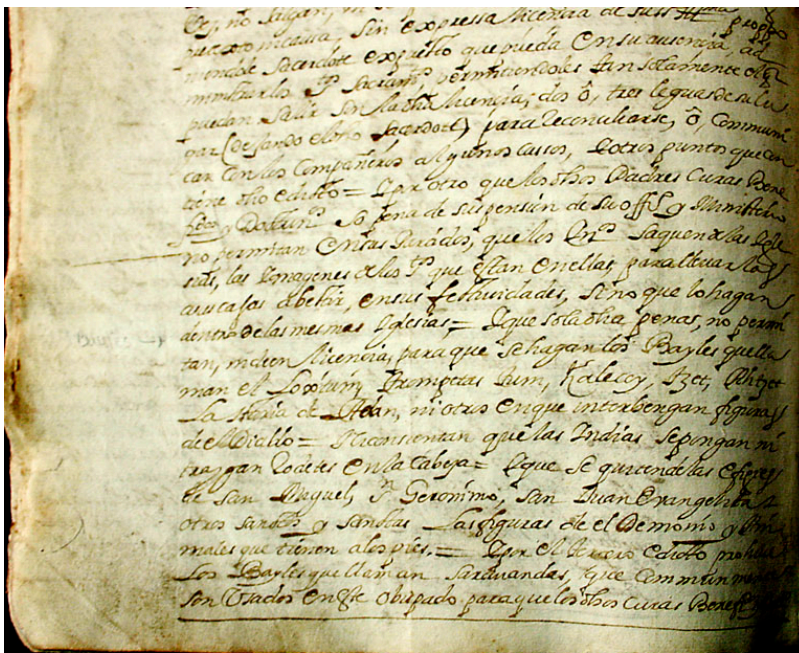 no salgan, en
sin expressa licencia de su
Sacerdote expuesto que pueda en su ausencia, ad
ministrarlos permitiendoles tan solamente
puedan salir sin la dha licencia, dos ô, tres leguas de su lu
gar (dejando el otro Sacerdote) para reconciliarse, ô, communi
car con los Compañeros algunos cassos, y otros puntos que con
tiene dho edicto = y por otro que los dhos Padres Curas Bene
so pena de suspensión de su y Ministerio
no permitan que los saquen de las Igle
sias, las Imagenes de los que estan en ellas, para llevarlas
a sus casas a bebir, en sus festiuidades, sino que lo hagan
dentro de las mesmas Iglesias, = y que so la dha pena, no permi
tan, ni den licencia, para que se hagan los Bayles que lla
man el Trompetas Tum, Kalecoy,
La Storia de Adan, ni otros en que interbengan figuras
de el Diablo = Ni consientan que las Indias se pongan ni
traygan rodetes en la Cabeza = y que se quiten de las
de San Miguel, S. Geronimo, San Juan Evangelista y
otros sanctos y sanctas las figuras de el Demonio y Ani
males que tienen a los pies. = y por el tercero edicto prohibe
Los Bayles que llaman Saravandas, que
son Usados en este Obispado para que los dhos Curas